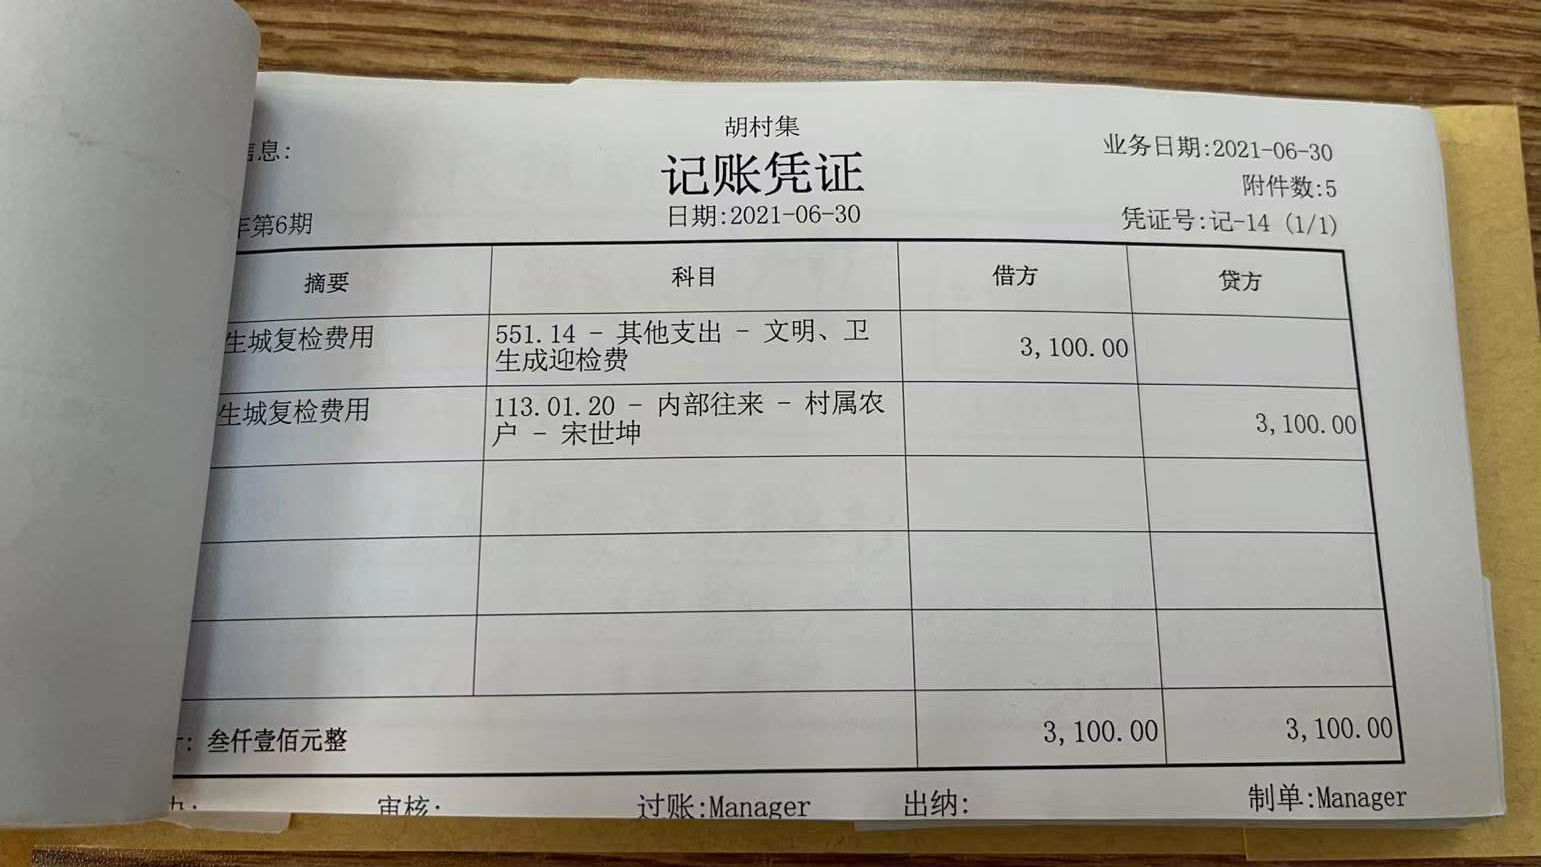 胡村集
息:
业务日期:2021-06-30
记账凭证
附件数:5
第6期
日期:2021-06-30
凭证号:记-14 (1/1)
摘要 科目 借方 贷方
生城复检费用 551.14 - 其他支出 - 文明、卫
生成迎检费 3,100.00
生城复检费用 113.01.20 - 内部往来 - 村属农
户 - 宋世坤 3,100.00
: 叁仟壹佰元整 3,100.00 3,100.00
审核: 过账:Manager 出纳: 制单:Manager